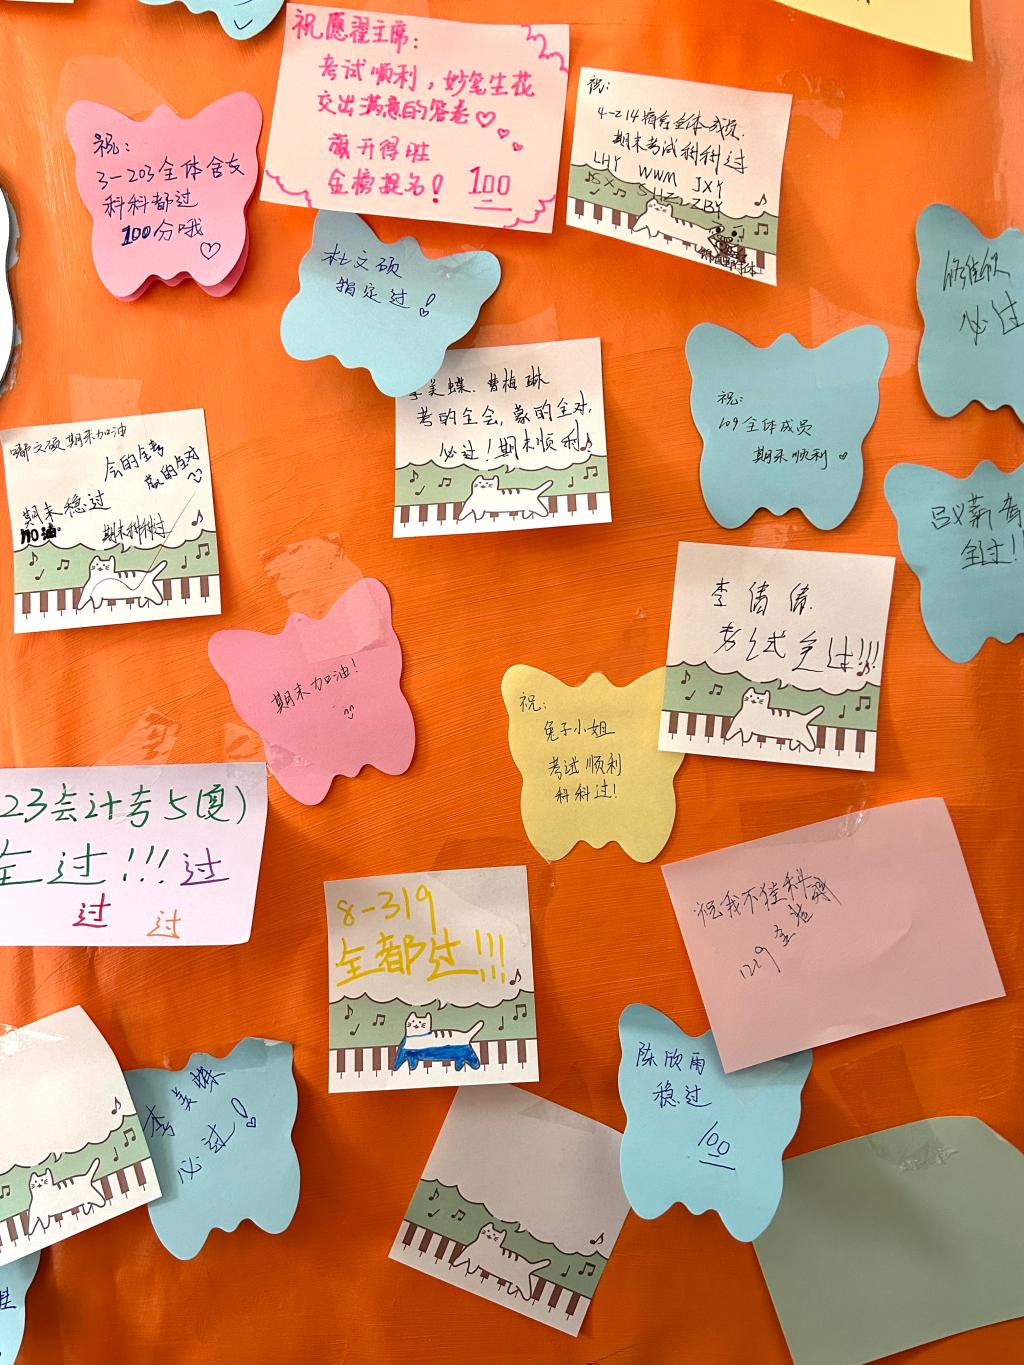 祝愿翟主席:
考试顺利,妙笔生花
交出满意的答卷♡
旗开得胜
金榜提名! 100
祝:
4-214宿舍全体成员.
期末考试科科过
LHY WWM JXY
ZBY
祝:
3-203全体舍友
科科都过
100分哦♡
杜文硕
指定过!
必过
李美蝶.曹梅琳
考的全会,蒙的全对,
必过!期末顺利!
祝:
109全体成员
期末顺利
文硕期末加油
会的全考
蒙的全对
期末稳过
加油。
期末科科过
全过!!
李倩倩.
考试全过!!!
期末加油!
祝:
兔子小姐
考试顺利
科科过!
23会计专5(夏)
全过!!!过
过 过
祝我不挂科
1219全过
8-319
全都过!!!
陈欣雨
稳过
100
李美蝶
必过!